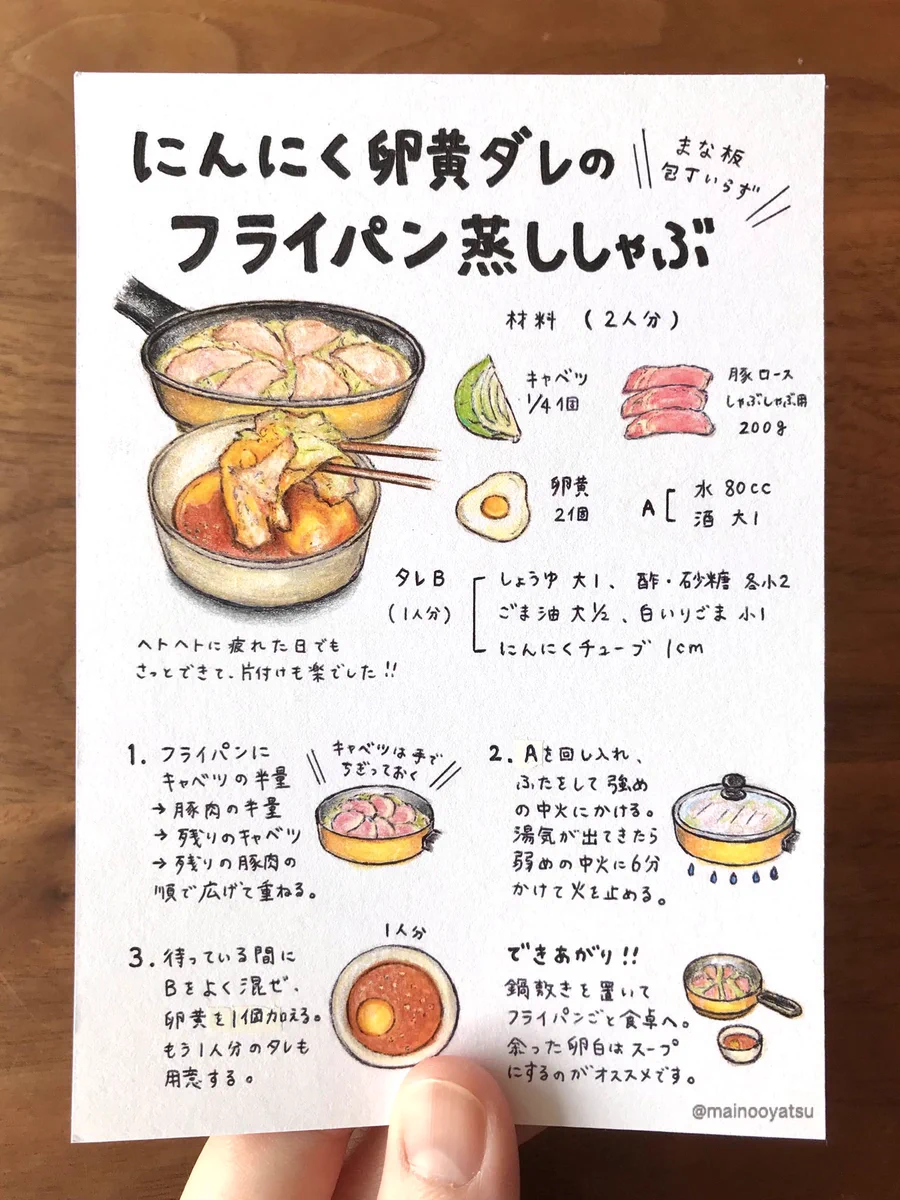 にんにく卵黄ダレの
フライパン蒸ししゃぶ
まな板
包丁いらず
材料 (2人分)
キャベツ
1/4個
豚ロース
しゃぶしゃぶ用
200g
卵黄
2個
A
水 80cc
酒 大1
タレB
(1人分)
しょうゆ 大1、酢・砂糖 各小2
ごま油 大1/2、白いりごま 小1
にんにくチューブ 1cm
ヘトヘトに疲れた日でも
さっとできて、片付けも楽でした!!
1. フライパンに
キャベツの半量
→豚肉の半量
→残りのキャベツ
→残りの豚肉の
順で広げて重ねる。
キャベツは手で
ちぎっておく
2. Aを回し入れ、
ふたをして強め
の中火にかける。
湯気が出てきたら
弱めの中火に6分
かけて火を止める。
3. 待っている間に
Bをよく混ぜ、
卵黄を1個加える。
もう1人分のタレも
用意する。
1人分
できあがり!!
鍋敷きを置いて
フライパンごと食卓へ。
余った卵白はスープ
にするのがオススメです。
@mainooyatsu